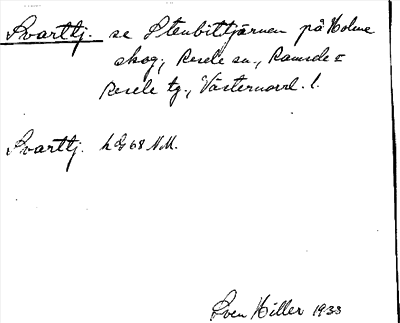 Svarttj. se Stenbittjärnen på Holme
skog, Resele sn., Ramsele =
Resele tg., Västernorrl. l.
Svarttj. h G 68 N.M.
Sven Hiller 1933